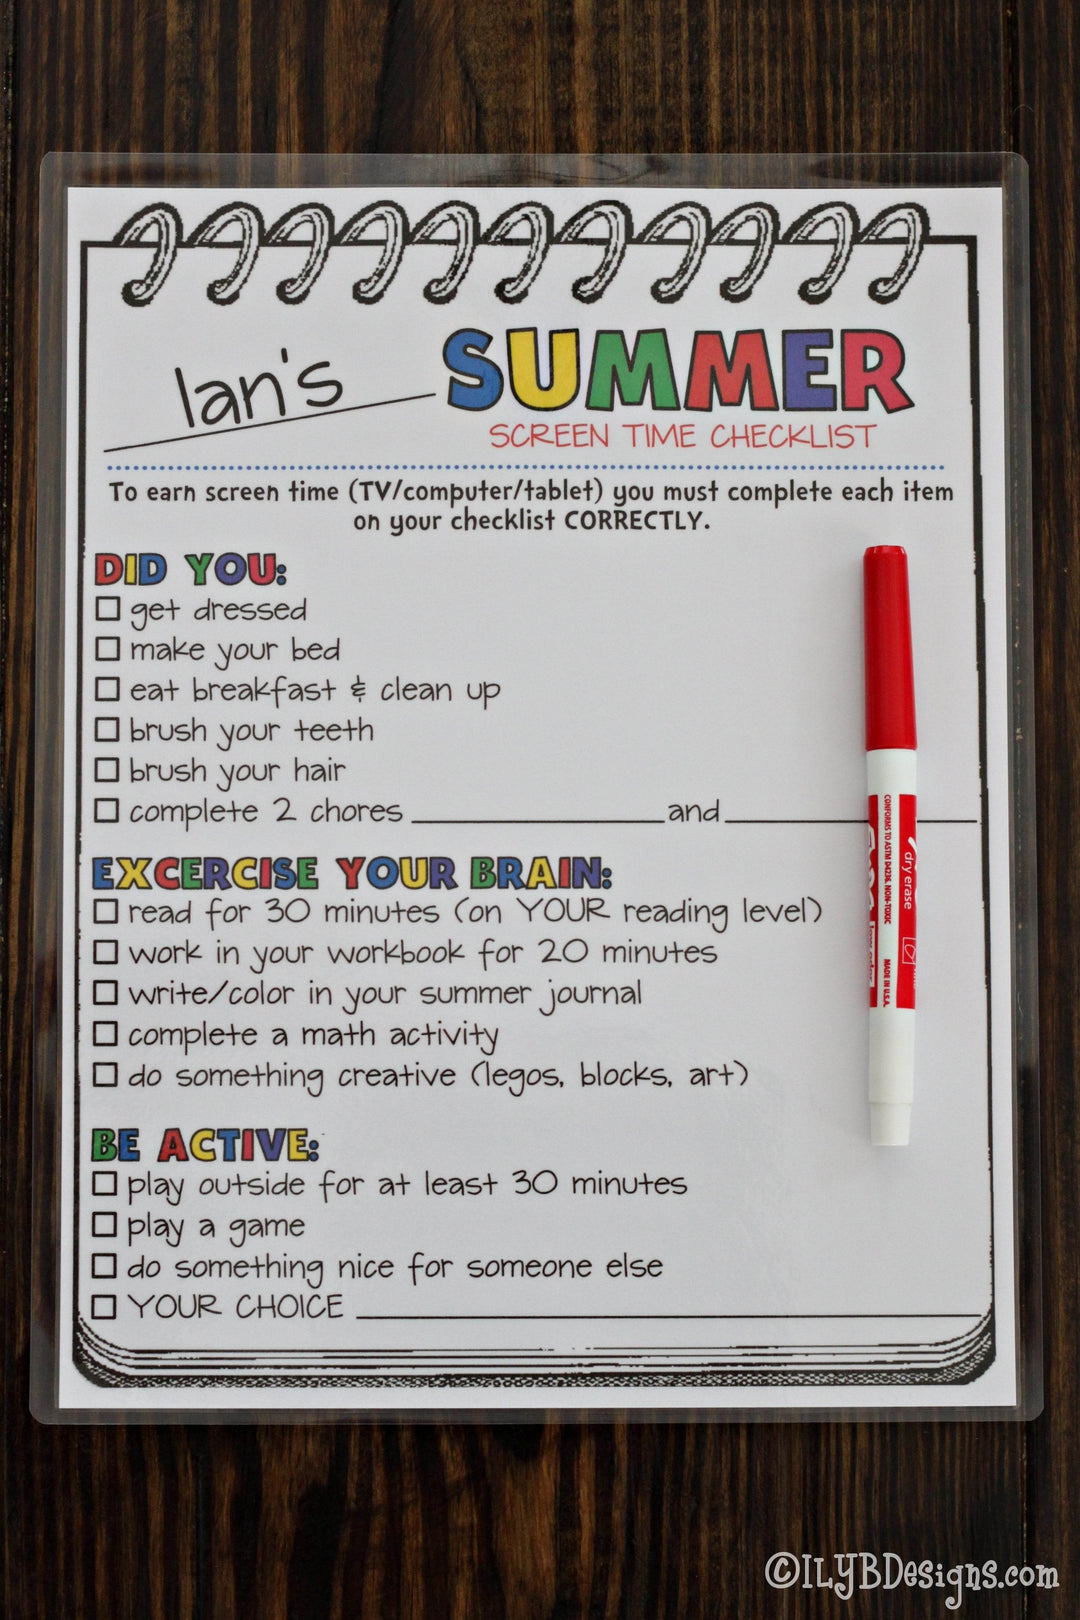 Ian's
SUMMER
SCREEN TIME CHECKLIST
To earn screen time (TV/computer/tablet) you must complete each item
on your checklist CORRECTLY.
DID YOU:
get dressed
make your bed
eat breakfast & clean up
brush your teeth
brush your hair
complete 2 chores and
EXCERCISE YOUR BRAIN:
read for 30 minutes (on YOUR reading level)
work in your workbook for 20 minutes
write/color in your summer journal
complete a math activity
do something creative (legos, blocks, art)
BE ACTIVE:
play outside for at least 30 minutes
play a game
do something nice for someone else
YOUR CHOICE
CONFORMS TO ASTM D4236. NON-TOXIC
MADE IN U.S.A.
dry erase
©ILYBDesigns.com